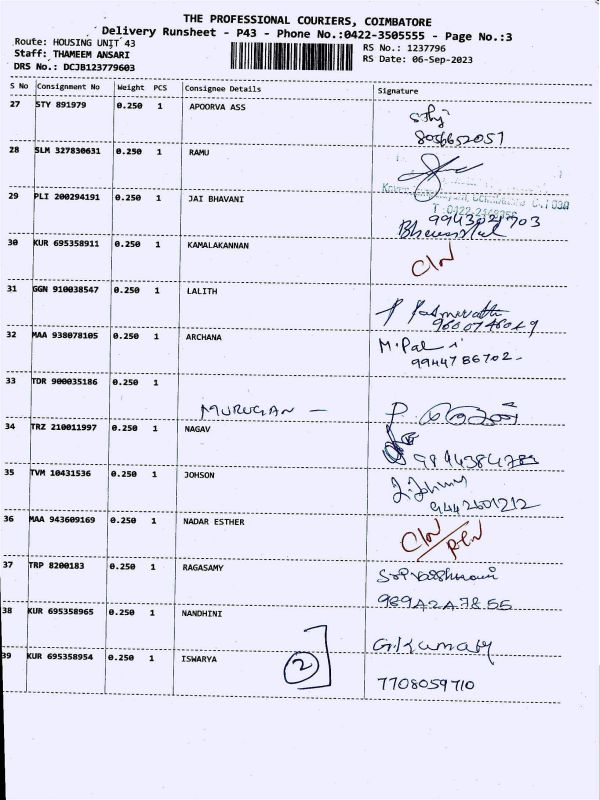 THE PROFESSIONAL COURIERS, COIMBATORE
Delivery Runsheet - P43 - Phone No.:0422-3505555 - Page No.:3
Route: HOUSING UNIT 43
Staff: THAMEEM ANSARI
DRS No.: DCJB123779603
RS No.: 1237796
RS Date: 06-Sep-2023
S No Consignment No Weight PCS Consignee Details Signature
27 STY 891979 0.250 1 APOORVA ASS
28 SLM 327830631 0.250 1 RAMU
29 PLI 200294191 0.250 1 JAI BHAVANI
9943021703
30 KUR 695358911 0.250 1 KAMALAKANNAN
C/N
31 GGN 910038547 0.250 1 LALITH
32 MAA 938078105 0.250 1 ARCHANA
M.Pal
9944786702
33 TDR 900035186 0.250 1
MURUGAN - P.
34 TRZ 210011997 0.250 1 NAGAV
35 TVM 10431536 0.250 1 JOHSON
9442601212
36 MAA 943609169 0.250 1 NADAR ESTHER
C/N
37 TRP 8200183 0.250 1 RAGASAMY
989A2A7855
38 KUR 695358965 0.250 1 NANDHINI
G.Kumary
39 KUR 695358954 0.250 1 ISWARYA
2
7708059710